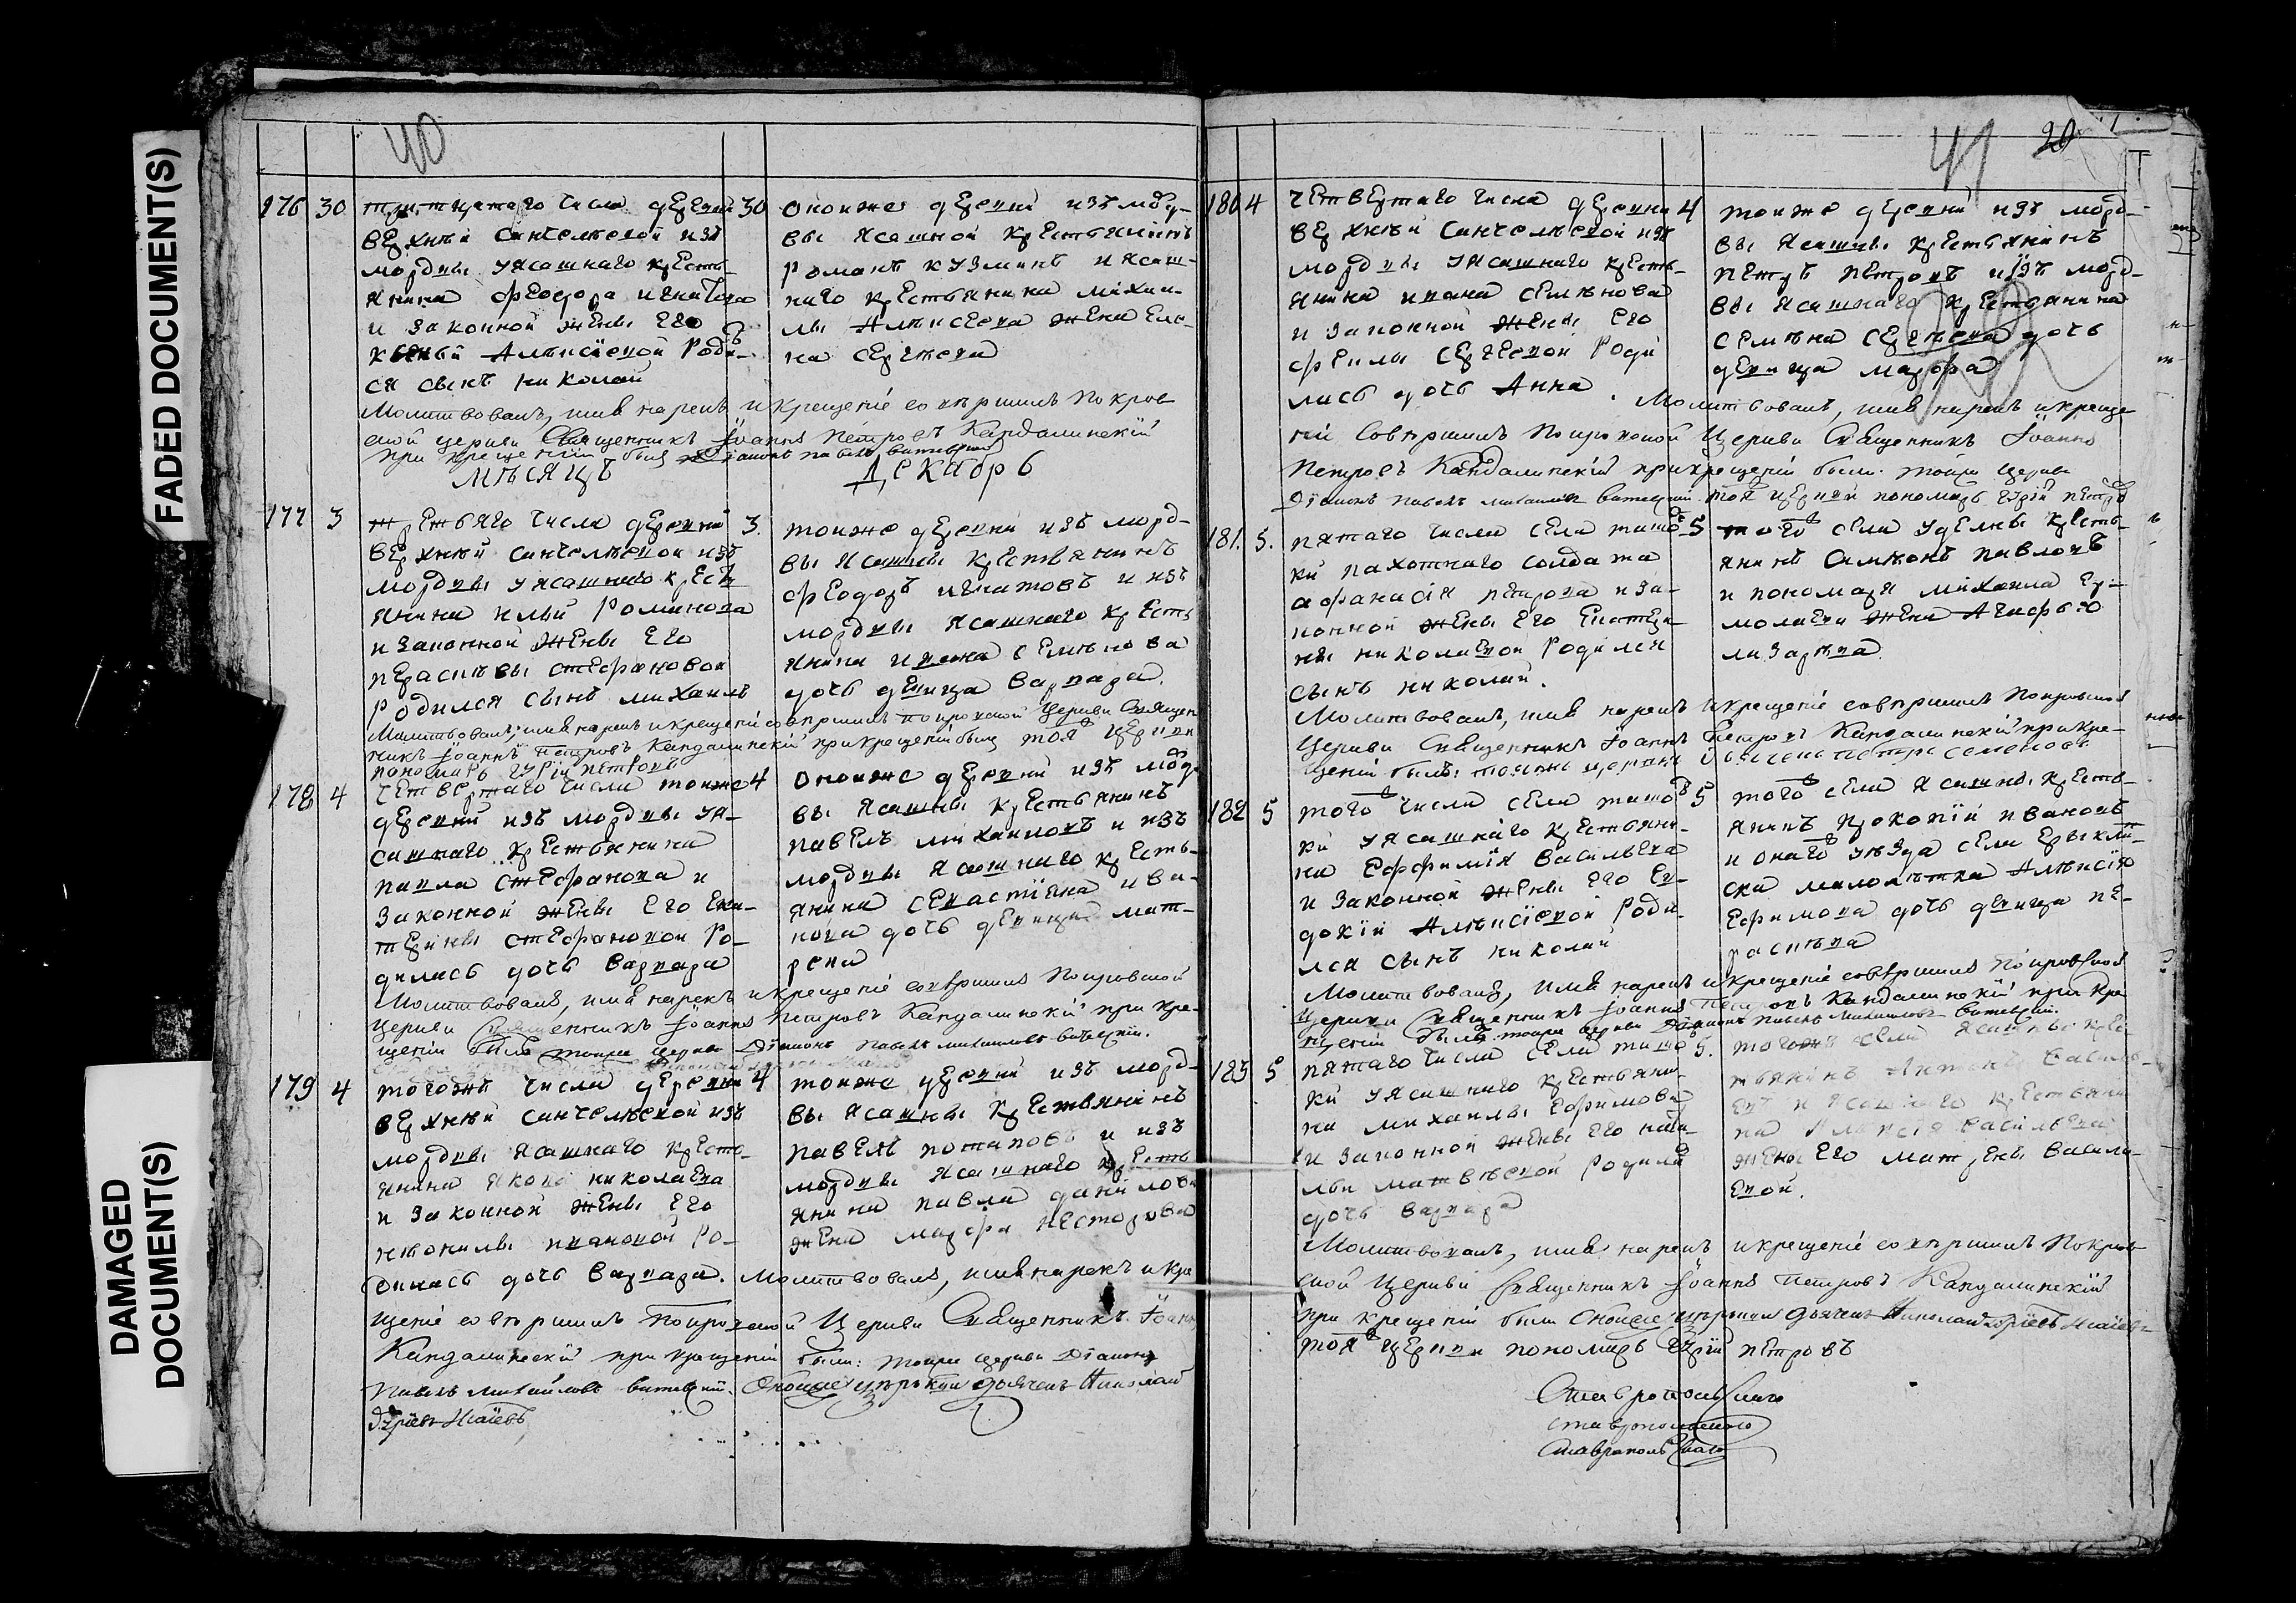 FADED DOCUMENT(S)
DAMAGED
DOCUMENT(S)
40
176 30 тритцетаго числа деревни
верхнѣй санчелѣевой изъ
мордвы уясашнаго кресть-
янина феодора игнатова
и законной жены его
Алѣксiевой Роди-
ся сынъ николай
30 оноиже деревни изъ морд-
вы ясашной крестьянинъ
романъ кузминъ и ясаш-
наго крестьянина михаи-
лы Алѣксеева жена еле-
на сергѣева
Молитвовалъ, имя нарекъ и крещенiе совершилъ Покров
ской церкви Священникъ Iоаннъ Петровъ Кандалинскiй
при крещенiи былъ Дiаконъ павелъ витевскiй
мѣсяцъ Декабрь
177 3 третьяго числа деревни
верхнѣй санчелѣевой изъ
мордвы уясашнаго крест
янина ильи Романова
и законной жены его
перасковьи стефановой
родился сынъ михаилъ
3. тоиже деревни изъ морд-
вы ясашны крестьянинъ
феодоръ игнатовъ и изъ
мордвы ясашнаго кресть
янина ивана семѣнова
дочь девица варвара.
Молитвовалъ, имя нарекъ и крещенiе совершилъ покровской Церкви Священ
никъ Iоаннъ Петровъ Кандалинскiй при крещенiи былъ тоя церкви
пономарь гурiй петровъ
178 4 четвертаго числа тоиже
деревни изъ мордвы уя-
сашнаго крестьянина
павла стефанова и
законной жены его ека-
терины стефановой ро-
дилась дочь варвара
4 оноиже деревни изъ морд-
вы ясашны крестьянинъ
павелъ михаиловъ и изъ
мордвы ясашнаго кресть-
янина севастiяна ива-
нова дочь девица мат-
рена
Молитвовалъ, имя нарекъ и крещенiе совершилъ Покровской
Церкви Священникъ Iоаннъ Петровъ Кандалинскiй при кре-
щенiи былъ тоиже церкви Дiаконъ павелъ михаиловъ витевскiй.
179 4 тогожъ числа деревни
верхнѣй санчелѣевой изъ
мордвы ясашнаго кресть-
янина якова николаева
и законной жены его
нѣонилы ивановой ро-
дилась дочь варвара.
4 тоиже деревни изъ морд-
вы ясашны крестьянинъ
павелъ потаповъ и изъ
мордвы ясашнаго кресть
янина павла данилова
жена марфа несторова
Молитвовалъ, имя нарекъ и кре
щенiе совершилъ Покровской Церкви Священникъ Iоаннъ
Кандалинскiй при крещенiи были: тоиже церкви Дiаконъ
Павелъ михаиловъ витевскiй. дьячекъ Николай
41 20
180 4 четвертаго числа деревни
верхнѣй санчелѣевой изъ
мордвы уясашнаго кресть-
янина ивана семѣнова
и законной жены его
феклы сергеевой роди
лась дочь Анна.
4 тоиже деревни изъ морд-
вы ясашны крестьянинъ
петръ петровъ изъ морд-
вы ясашнаго крестьянина
семѣна сергѣева дочь
девица марфа
Молитвовалъ, имя нарекъ и креще
нiе совершилъ Покровской Церкви Священникъ Iоаннъ
Петровъ Кандалинскiй при крещенiи были тоиже церкви
Дiаконъ павелъ михаиловъ витевскiй. тоя церкви пономарь гурiй петровъ
181. 5. пятаго числа села ташол-
ки пахотнаго солдата
афанасiя петрова и за-
конной жены его екатери-
ны николаевой родился
сынъ николай.
5 того села уделны кресть-
янинъ Симѣонъ павловъ
и пономаря михаила ер-
молаева жена Агафья
лазарева.
Молитвовалъ, имя нарекъ и крещенiе совершилъ Покровской
Церкви Священникъ Iоаннъ Петровъ Кандалинскiй при кре-
щенiи былъ: тояже церкви дьячекъ петръ семеновъ
182 5 того числа села ташол-
ки уясашнаго крестьяни-
на Ефимiя васильева
и законной жены его ев-
докiи Алѣксiевой роди-
лся сынъ николай
5 того села ясашны кресть-
янинъ прокопiй ивановъ
и онаго уѣзда села ерыкли-
ски малолѣтка Алѣксiя
Ефимова дочь девица пе-
расковья
Молитвовалъ, имя нарекъ и крещенiе совершилъ Покровской
Церкви Священникъ Iоаннъ Петровъ Кандалинскiй при кре
щенiи былъ тоиже церкви Дiаконъ павелъ михаиловъ витевскiй.
183 5 пятаго числа села ташол-
ки уясашнаго крестьяни-
на михаилы ефимова
и законной жены его ната-
льи матвѣевой родила
дочь варвара
5. тогожъ села ясашны кре-
стьянинъ Антонъ василь-
евъ и ясашнаго крестьяни
на Алѣксiя васильева
жены его матрены василь-
евой.
Молитвовалъ, имя нарекъ и крещенiе совершилъ Покров
ской Церкви Священникъ Iоаннъ Петровъ Кандалинскiй
при крещенiи были дьячекъ Николай
тоя церкви пономарь гурiй петровъ
Ставропольскаго
ставропольского
Ставропольскаго